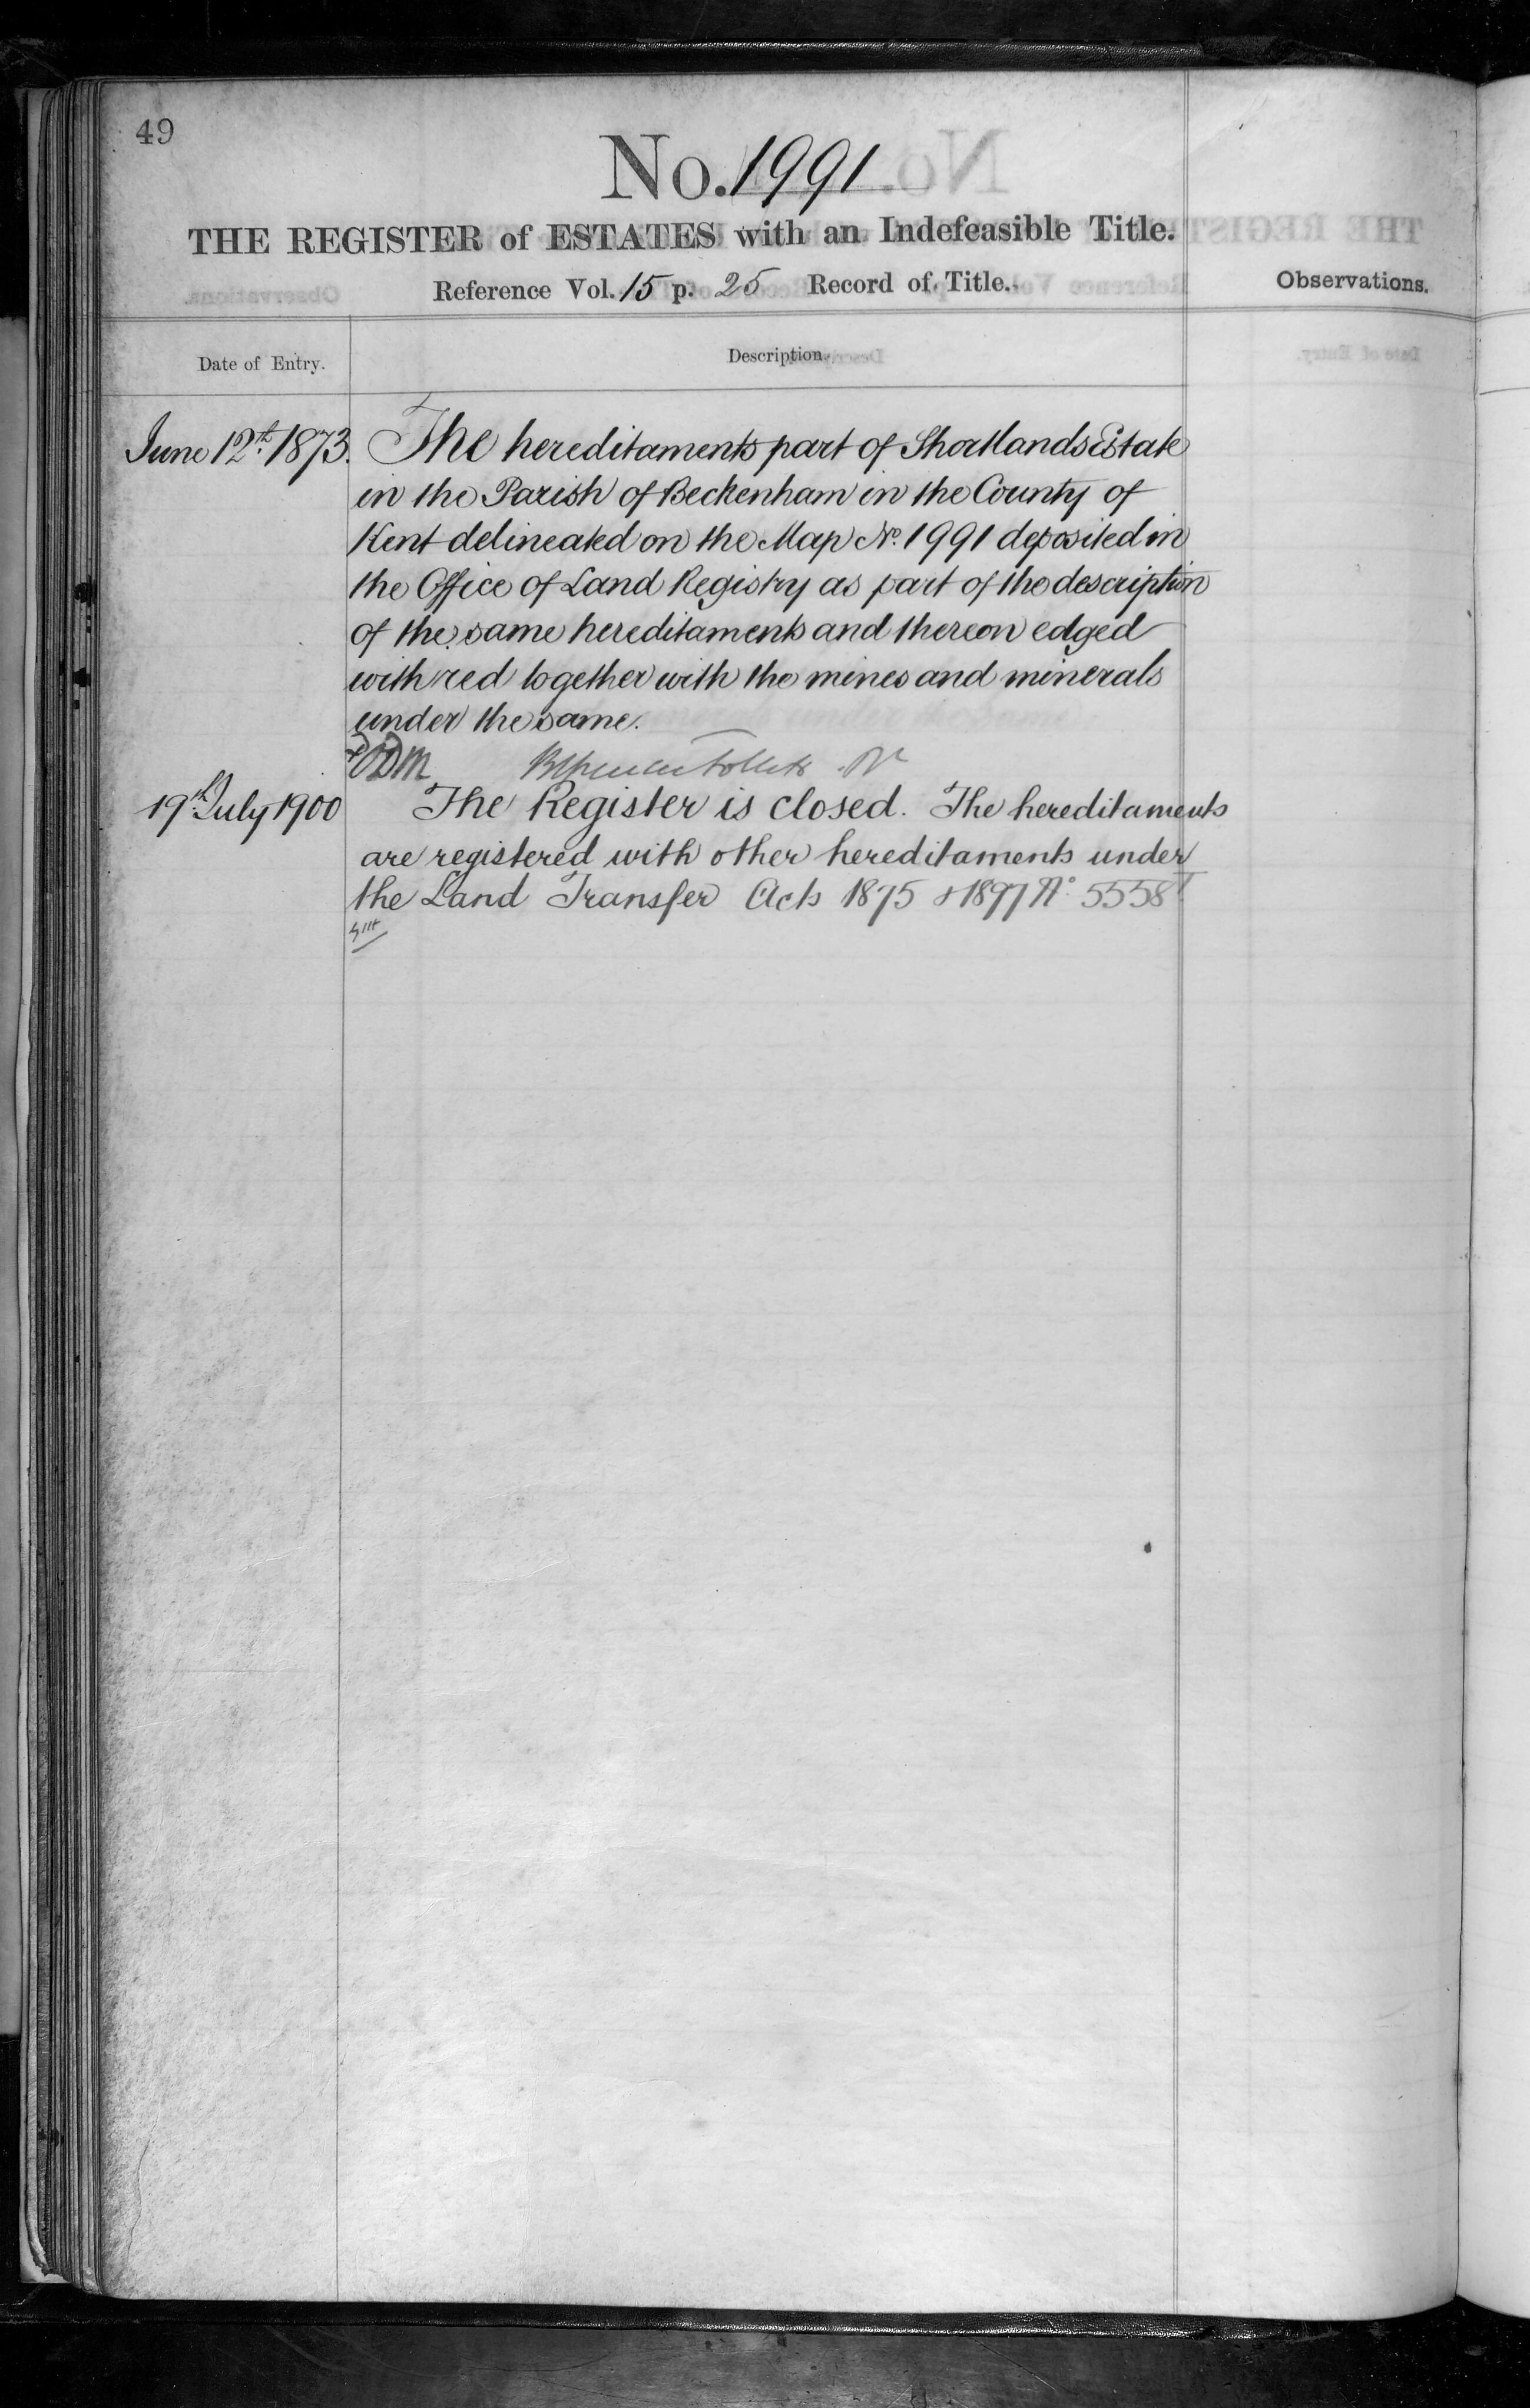 49
No. 1991
THE REGISTER of ESTATES with an Indefeasible Title.
Reference Vol. 15 p. 25 Record of Title.
Observations.
Date of Entry.
Description.
June 12th. 1873. The hereditaments part of Shortlands Estate
in the Parish of Beckenham in the County of
Kent delineated on the Map No. 1991 deposited in
the Office of Land Registry as part of the description
of the same hereditaments and thereon edged
with red together with the mines and minerals
under the same.
19th July 1900 The Register is closed. The hereditaments
are registered with other hereditaments under
the Land Transfer Acts 1875 & 1897 No. 5558